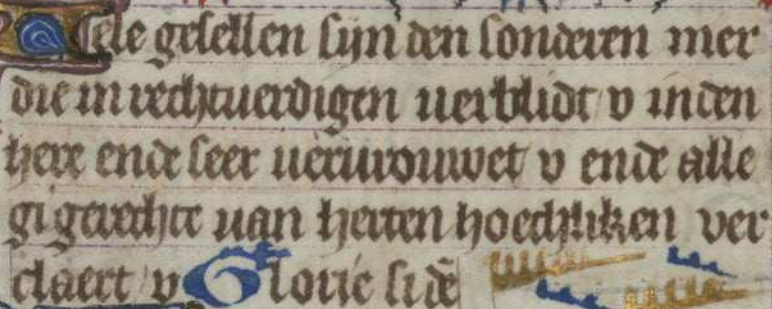 Uele geselen sijn den sonderen mer
die in rechtuerdigen uerblidt v in den
here ende seer uerurouwet v ende alle
gi gerechte uan herten hoechliken ver
claert v Glorie si dē